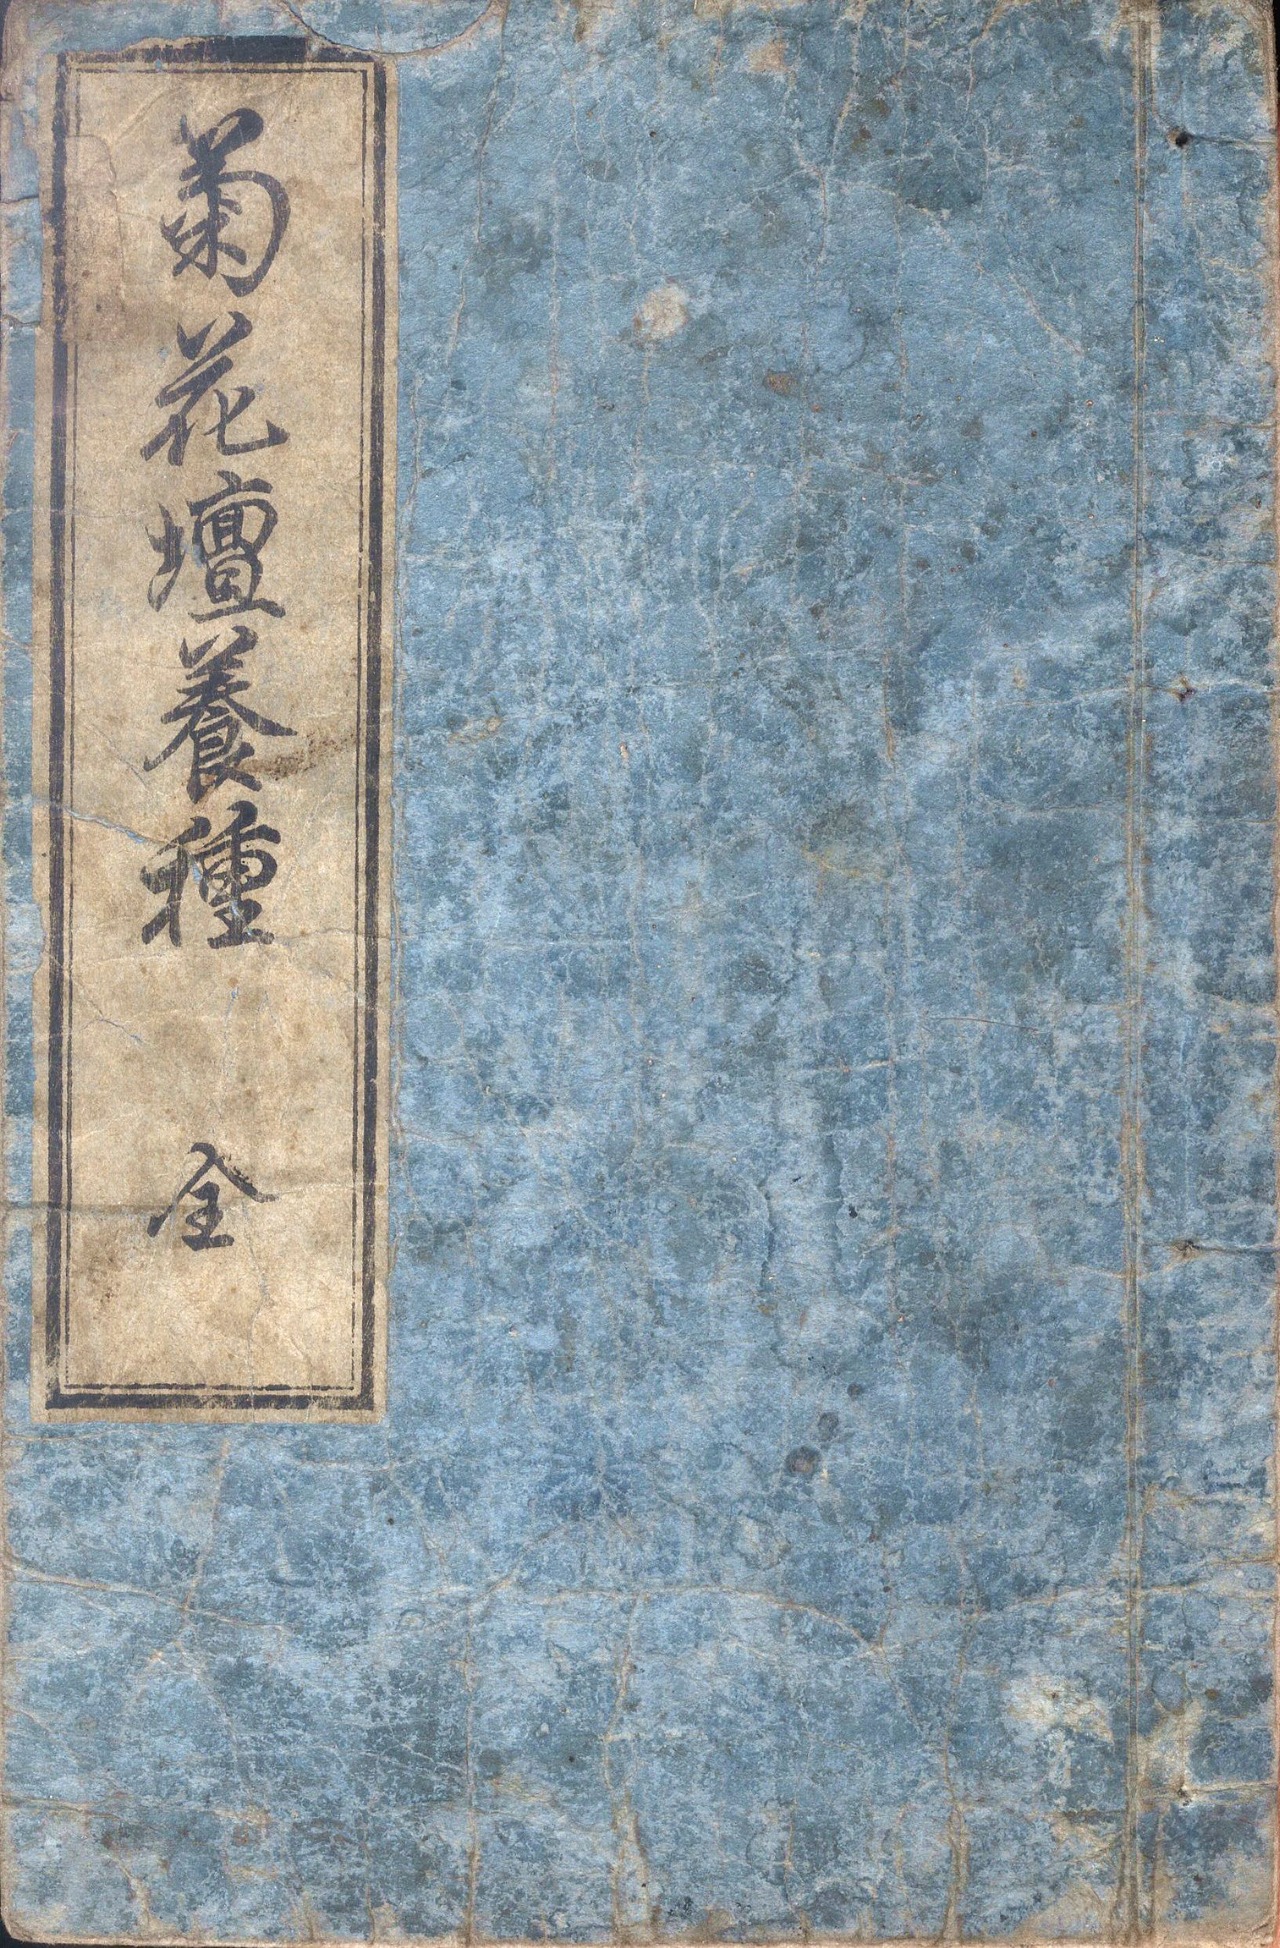 菊花壇養種 全